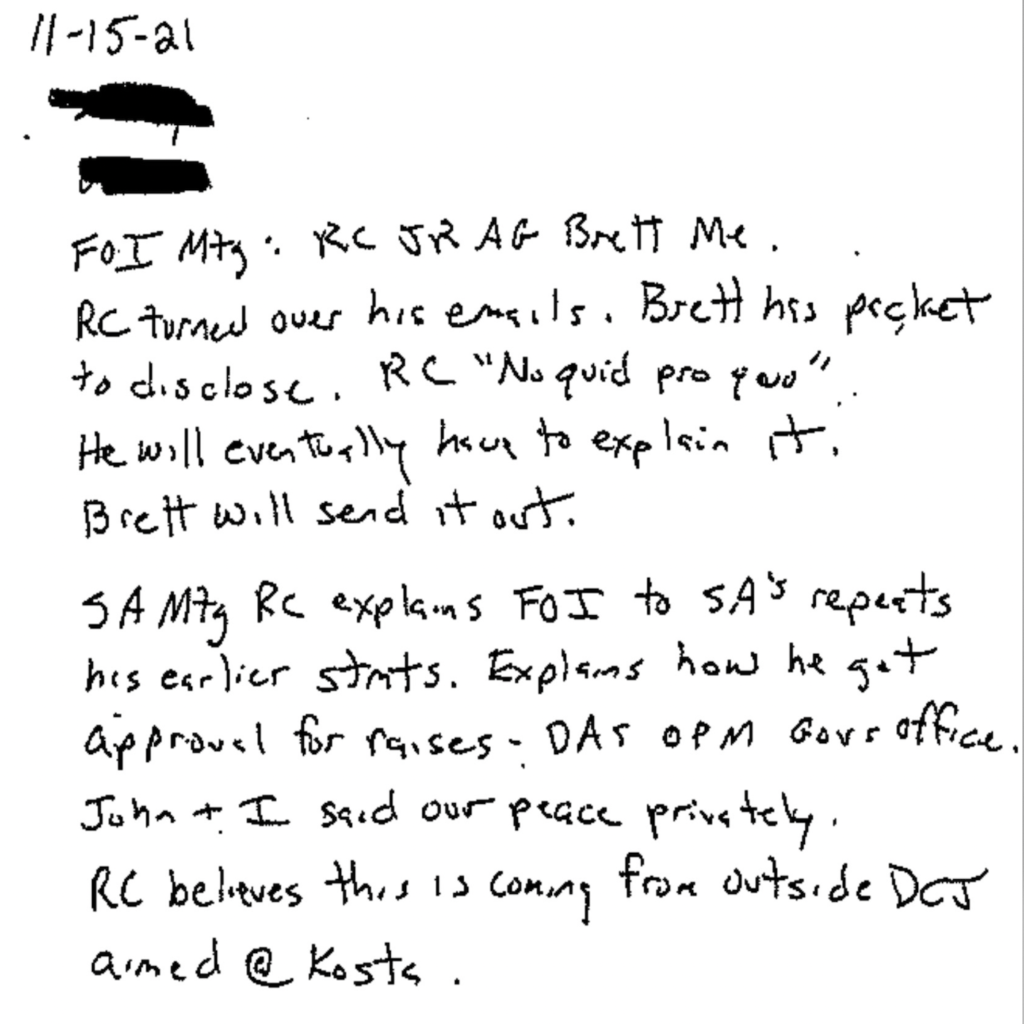 11-15-21
FOI Mtg: RC JR AG Brett Me.
RC turned over his emails. Brett has packet
to disclose. RC "No quid pro quo"
He will eventually have to explain it.
Brett will send it out.
SA Mtg RC explains FOI to SA's repeats
his earlier stmts. Explains how he got
approval for raises - DAS OPM Govs office.
John + I said our peace privately.
RC believes this is coming from outside DCJ
aimed @ Kosta.